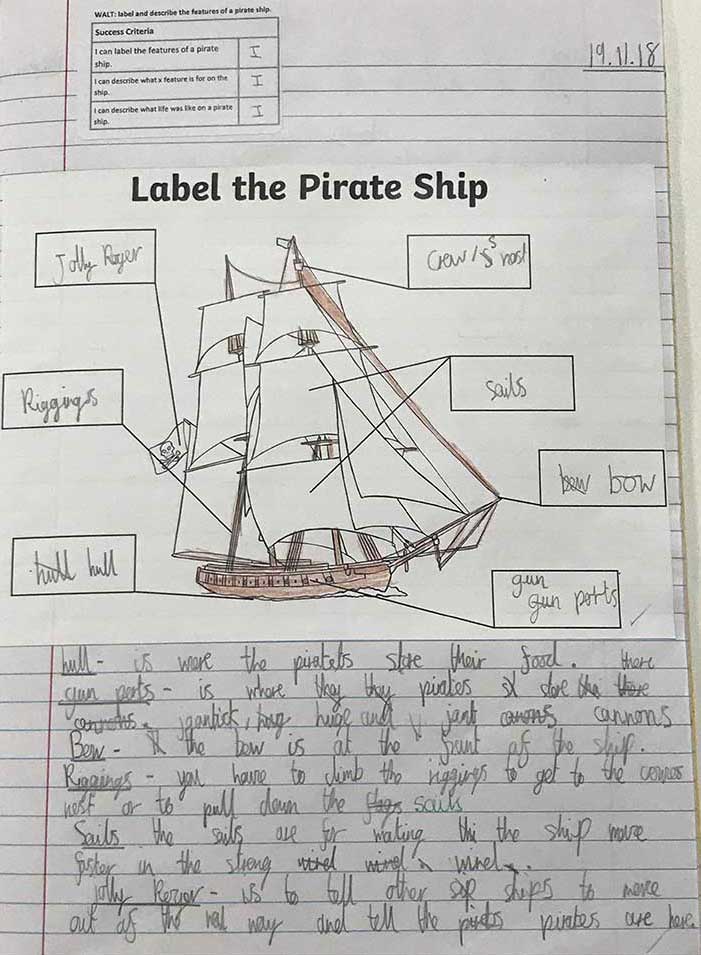 WALT: label and describe the features of a pirate ship.
Success Criteria
I can label the features of a pirate
ship.
I
I can describe what x feature is for on the
ship.
I
I can describe what life was like on a pirate
ship.
I
19.11.18
Label the Pirate Ship
Jolly Roger
Crew's nest
Riggings
sails
bow
hull
gun
gun ports
hull - is were the piratets store their food. there
gun ports - is where they they pirates store
huge and jant cannons
Bow - the bow is at the frunt of the ship.
Riggings - you have to climb the riggings to get to the
nest or to pull down the flags sails
Sails the sails are for making the ship move
faster in the strong wind.
jolly - is to tell other ships to move
out of the way and tell the pirates are here.